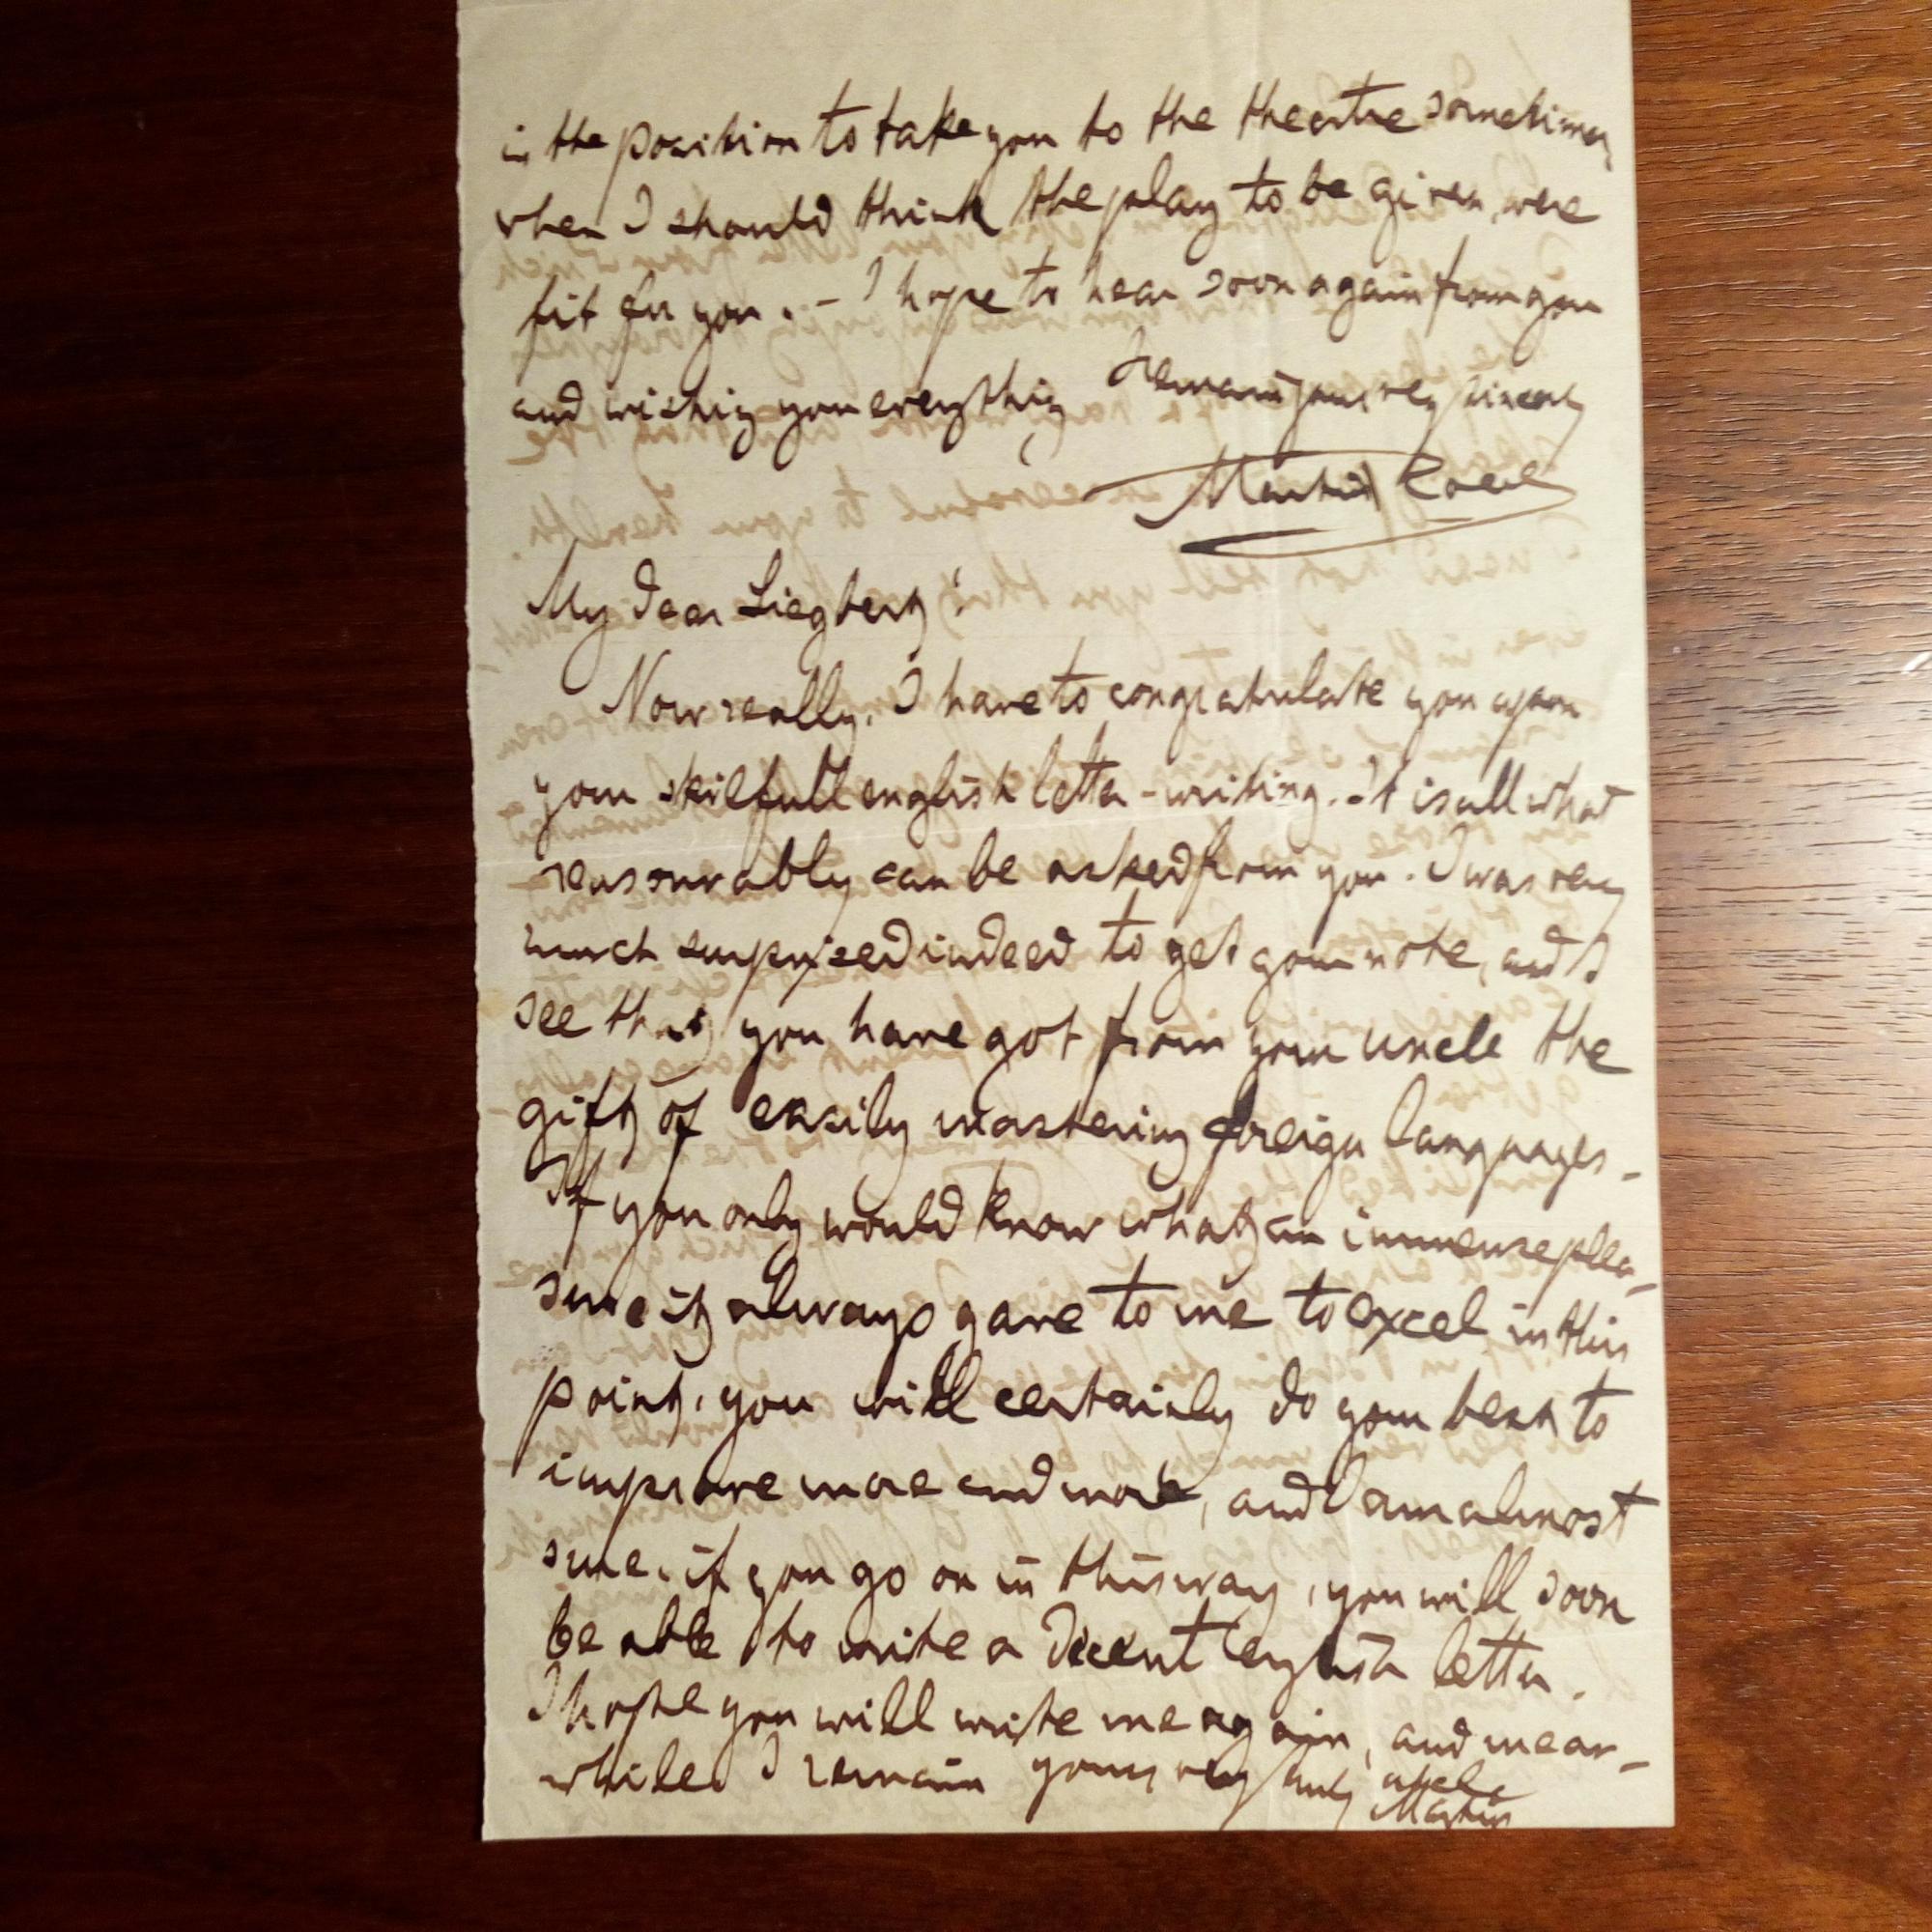 in the position to take you to the theatre sometimes
when I should think the play to be given, were
fit for you. - I hope to hear soon again from you
and wishing you everything I remain yours very sincerely
Martin
My dear Siegbert!
Now really, I have to congratulate you upon
your skilfull english letter-writing. It is all what
reasonably can be asked from you. I was very
much surprised indeed to get your note, and I
see that you have got from your uncle the
gift of easily mastering foreign languages.
If you only would know what an immense plea-
sure it always gave to me to excel in this
point, you will certainly do your best to
improve more and more, and I am almost
sure, if you go on in this way, you will soon
be able to write a decent english letter.
I hope you will write me again, and mean-
while I remain yours very truly uncle
Martin